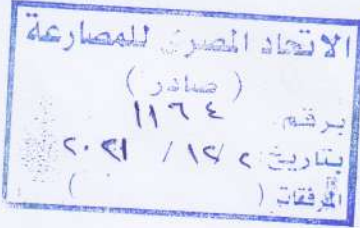 الاتحاد المصرى للمصارعة
( صادر )
برقم ١١٦٤
بتاريخ ٢ / ١٢ / ٢٠٢١
المرفقات ( )